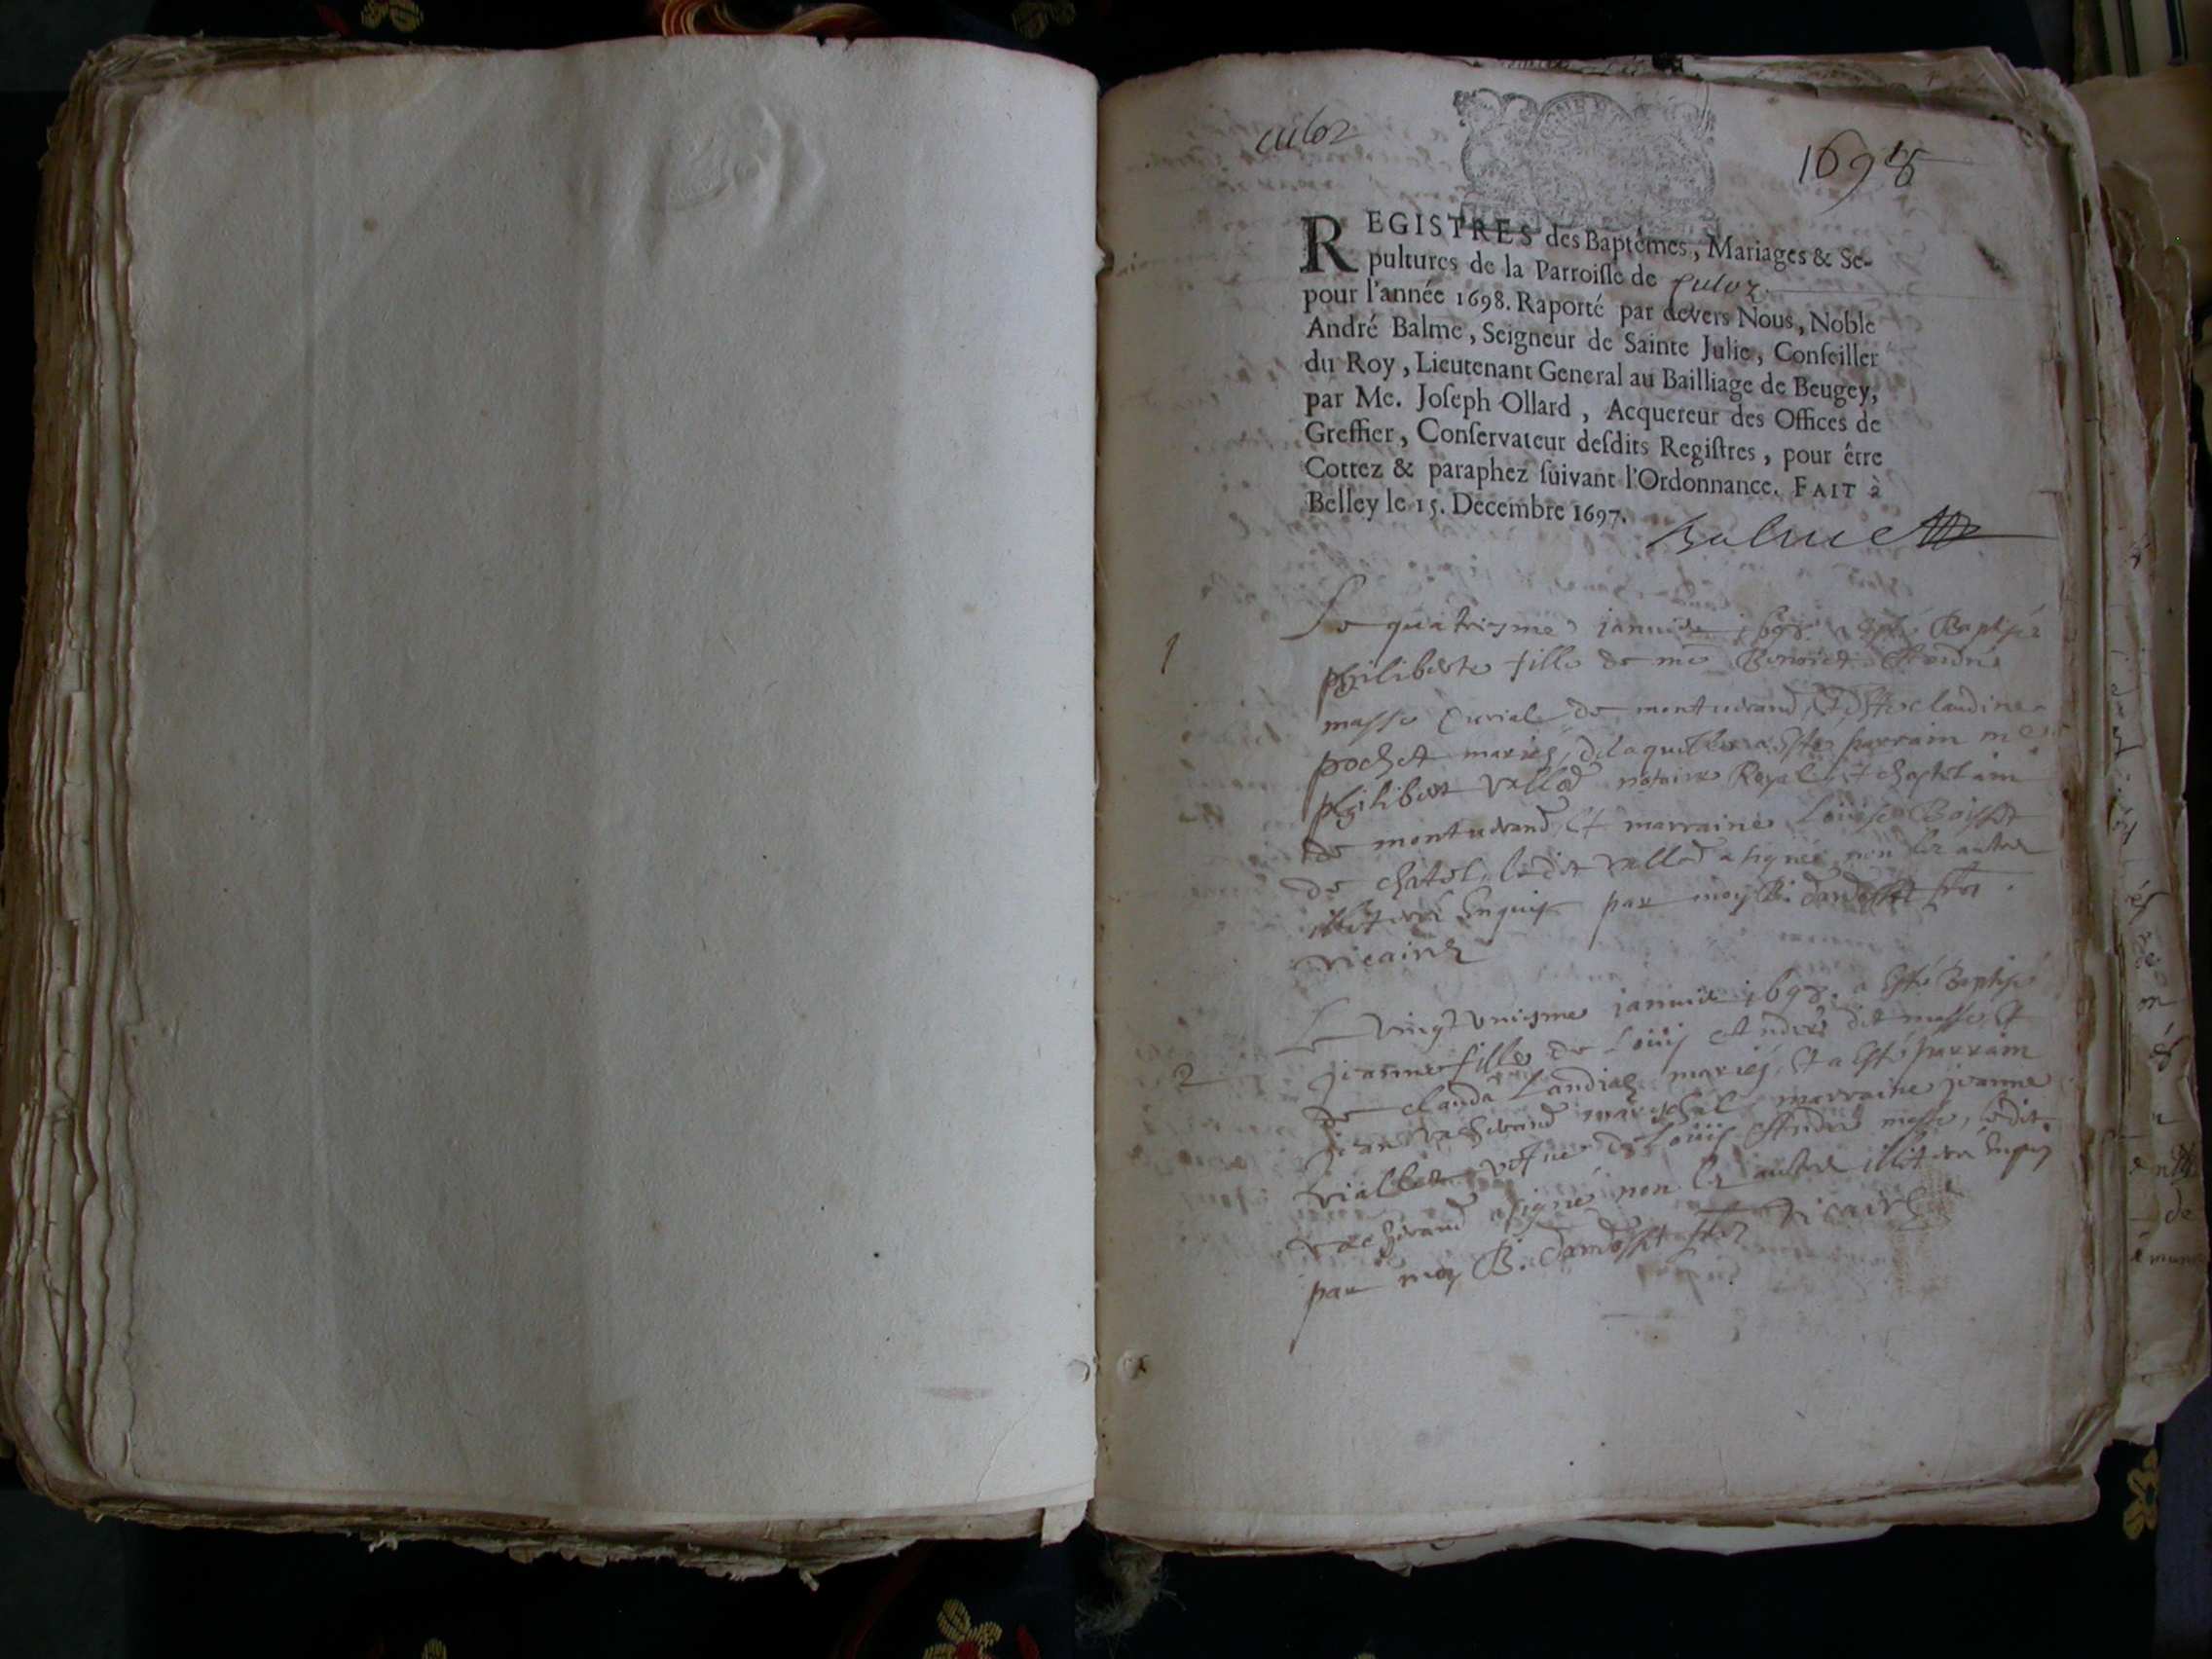 culoz
1698
REGISTRES des Baptêmes, Mariages & Se-
pultures de la Parroisse de Culoz
pour l'année 1698. Raporté par devers Nous, Noble
André Balme, Seigneur de Sainte Julie, Conseiller
du Roy, Lieutenant General au Bailliage de Beugey,
par Me. Joseph Ollard, Acquereur des Offices de
Greffier, Conservateur desdits Registres, pour être
Cottez & paraphez suivant l'Ordonnance. FAIT à
Belley le 15. Decembre 1697.
Balme
Le quatriesme janvier 1698 a esté Baptisée
1
philiberte fille de me Benoict
masse curial de montverand, et claudine
pochet mariés, de laquelle a esté parrain me
philibert vallod notaire Royal et chastelain
de montverand, et marraine Louise Boisset
de chatel, ledit vallod a signé non les autres
illiterés enquis par moy B. dandosset ptre
vicaire
Le vingt uniesme janvier 1698. a esté Baptisé
2
jeanne fille de Louis Andre dit masse, et
de clauda Landiaz mariés, et a esté parrain
jean vacherand mareschal marraine jeanne
viallet vefve de Louis Andre masse, ledit
vacherand a signé non les autres illiterés enquis
par moy B. dandosset ptre vicaire